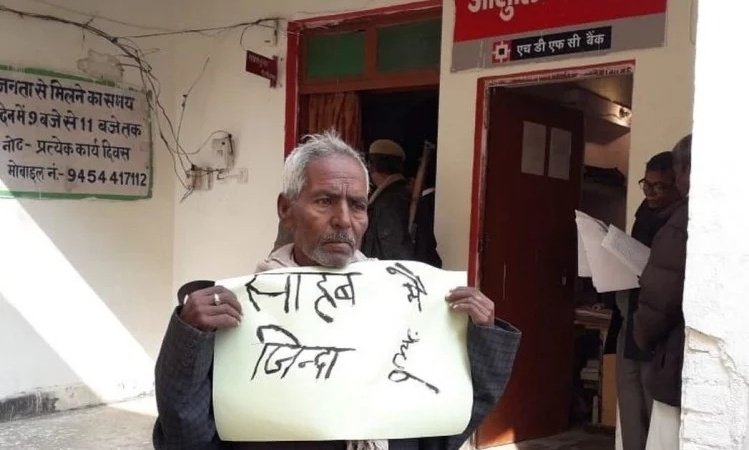 जनता से मिलने का समय
दिन में 9 बजे से 11 बजे तक
नोट- प्रत्येक कार्य दिवस
मोबाइल नं.- 9454417112
एच डी एफ सी बैंक
साहब मैं
जिन्दा हूँ